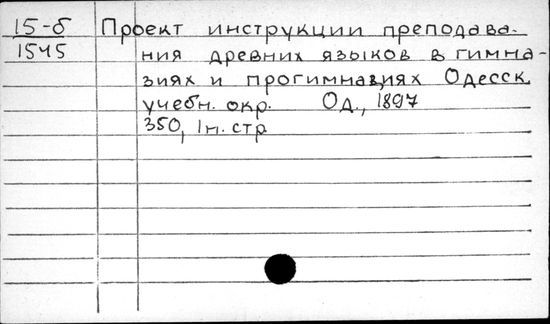 15-б Проект инструкции преподава-
1545 ния древних языков в гимна-
зиях и прогимназиях Одесск.
учебн. окр. Од., 1897
350, 1н. стр